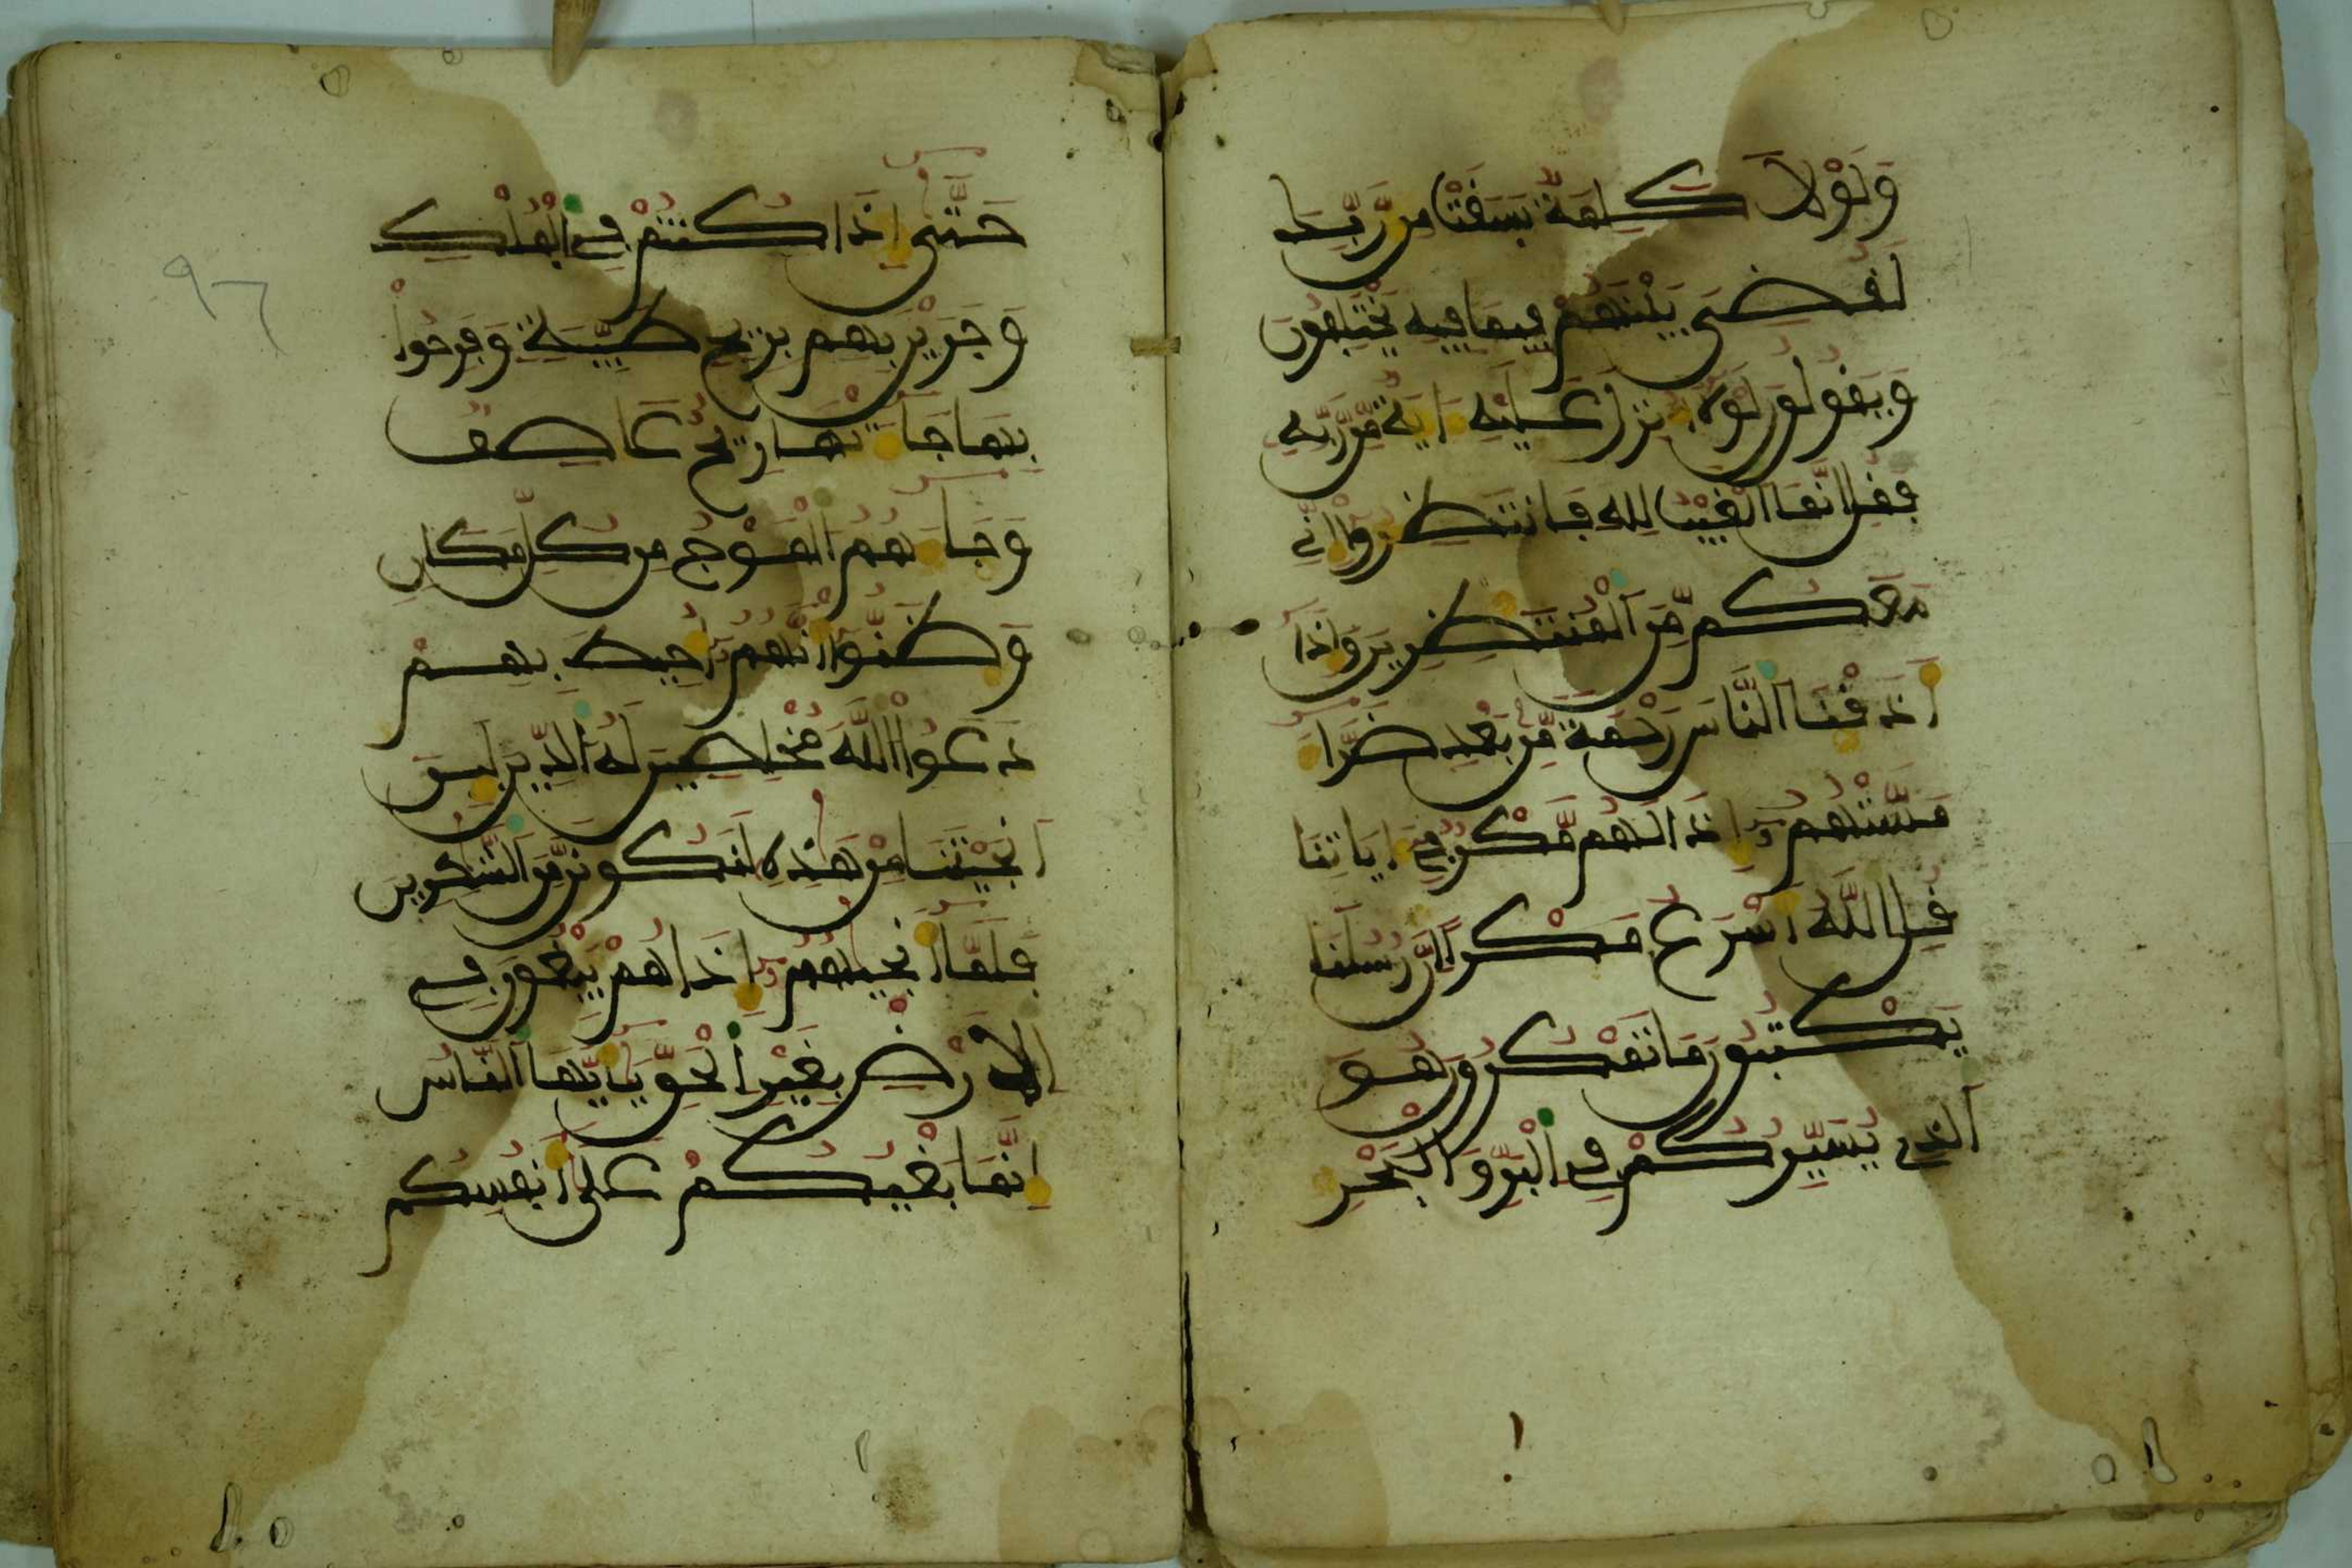 وَلَوْلَا كَلِمَةٌ سَبَقَتْ مِن رَّبِّكَ
لَقُضِيَ بَيْنَهُمْ فِيمَا فِيهِ يَخْتَلِفُونَ
وَيَقُولُونَ لَوْلَا أُنزِلَ عَلَيْهِ ءَايَةٌ مِّن رَّبِّهِ
فَقُلِ انَّمَا اَلْغَيْبُ لِلهِ فَانتَظِرُوا إِنِّي
مَعَكُم مِّنَ اَلْمُنتَظِرِينَ وَإِذَا
أَذَقْنَا اَلنَّاسَ رَحْمَةً مِّن بَعْدِ ضَرَّاءَ
مَسَّتْهُمُ إِذَا لَهُم مَّكْرٌ فِي ءَايَاتِنَا
قُلِ اِللَّهُ أَسْرَعُ مَكْرًا اِنَّ رُسُلَنَا
يَكْتُبُونَ مَا تَمْكُرُونَ هُوَ
اَلذِي يُسَيِّرُكُمْ فِي اِلْبَرِّ وَالْبَحْرِ
حَتَّى إِذَا كُنتُمْ فِي اِلْفُلْكِ
وَجَرَيْنَ بِهِم بِرِيحٍ طَيِّبَةٍ وَفَرِحُوا
بِهَا جَاءَتْهَا رِيحٌ عَاصِفٌ
وَجَاءَهُمُ اَلْمَوْجُ مِن كُلِّ مَكَانٍ
وَظَنُّوا أَنَّهُمُ أُحِيطَ بِهِمْ
دَعَوُا اللَّهَ مُخْلِصِينَ لَهُ اَلدِّينَ لَئِنَ
اَنجَيْتَنَا مِنْ هَذِهِ لَنَكُونَنَّ مِنَ اَلشَّكِرِينَ
فَلَمَّا أَنجَيهُمُ إِذَا هُمْ يَبْغُونَ فِي
اِلْأَرْضِ بِغَيْرِ اِلْحَقِّ يَأَيُّهَا اَلنَّاسُ
إِنَّمَا بَغْيُكُمْ عَلَى أَنفُسِكُم
٩٦